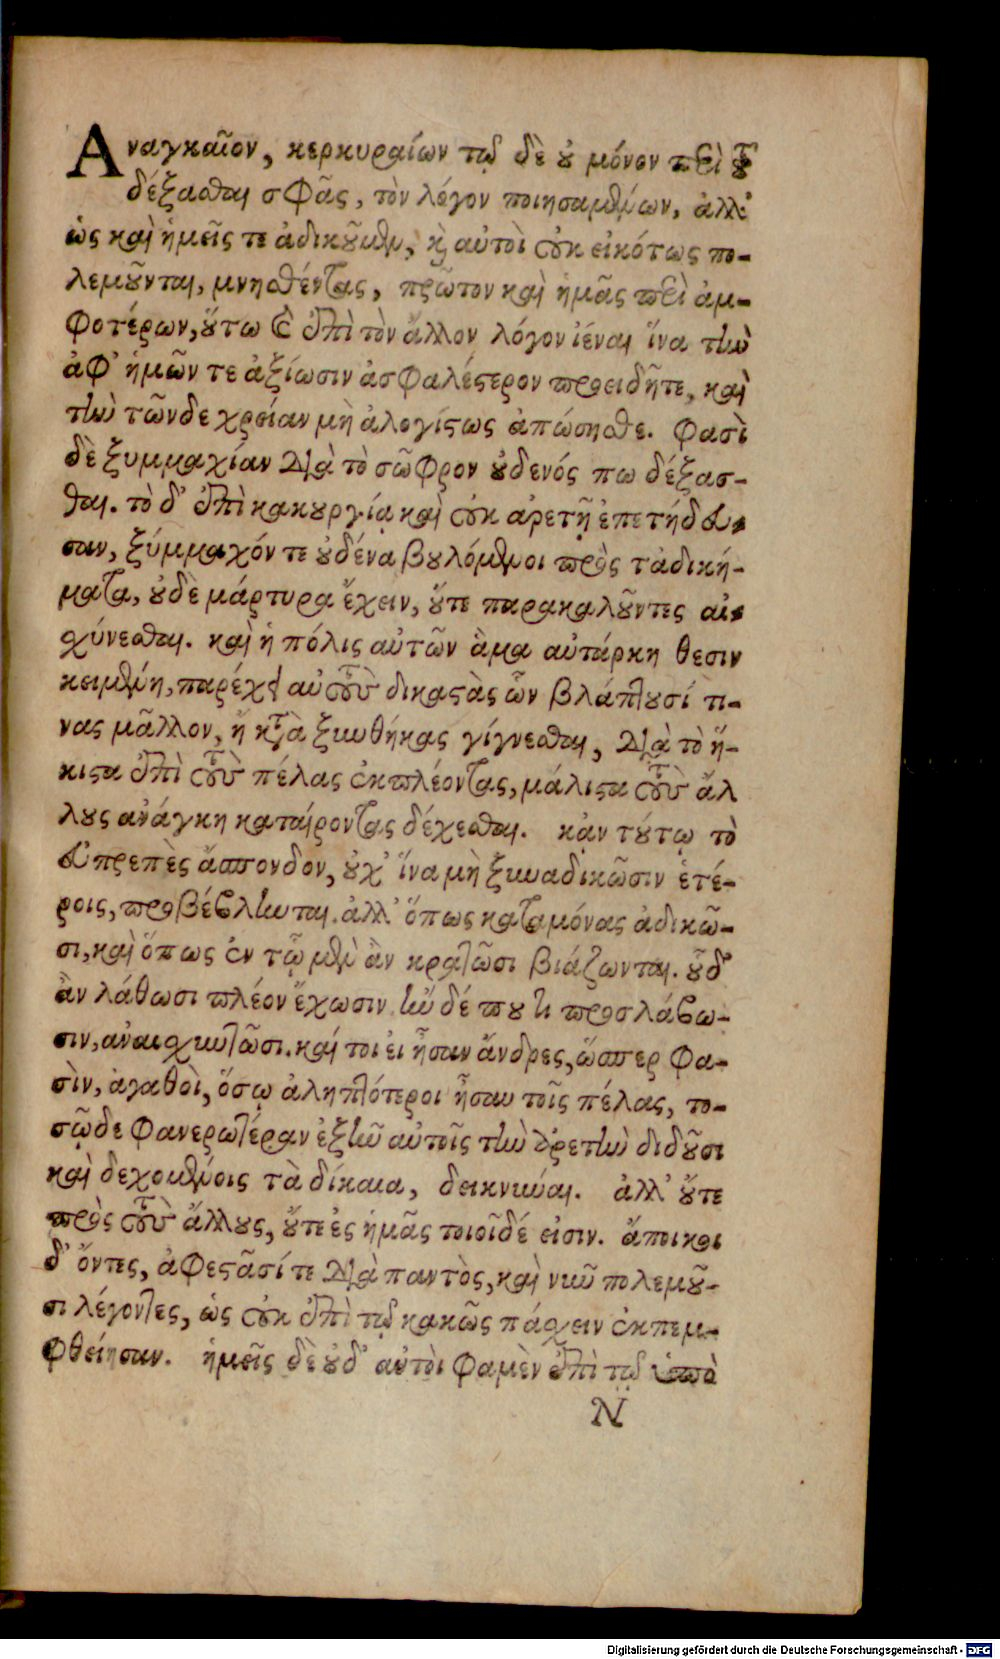 Αναγκαῖον, κερκυραίων τῶν δὲ οὐ μόνον περὶ τοῦ
δέξασθαι σφᾶς, τὸν λόγον ποιησαμένων, ἀλλ'
ὡς καὶ ἡμεῖς τε ἀδικοῦμεν, καὶ αὐτοὶ οὐκ εἰκότως πο-
λεμοῦνται, μνησθέντας, πρῶτον καὶ ἡμᾶς περὶ ἀμ-
φοτέρων, οὕτω καὶ ἐπὶ τὸν ἄλλον λόγον ἰέναι ἵνα τὴν
ἀφ' ἡμῶν τε ἀξίωσιν ἀσφαλέστερον προειδῆτε, καὶ
τὴν τῶνδε χρείαν μὴ ἀλογίστως ἀπώσησθε. φασὶ
δὲ ξυμμαχίαν διὰ τὸ σῶφρον οὐδενός πω δέξασ-
θαι. τὸ δ' ἐπὶ κακουργίᾳ καὶ οὐκ ἀρετῇ ἐπετήδευ
σαν, ξύμμαχόν τε οὐδένα βουλόμενοι πρὸς τἀδική-
ματα, οὐδὲ μάρτυρα ἔχειν, οὔτε παρακαλοῦντες αἰ
χύνεσθαι. καὶ ἡ πόλις αὐτῶν ἅμα αὐτάρκη θεσιν
κειμένη, παρέχει αὐτοὺς δικαστὰς ὧν βλάπτουσί τι-
νας μᾶλλον, ἢ κατὰ ξυνθήκας γίγνεσθαι, διὰ τὸ ἥ-
κιστα ἐπὶ τοὺς πέλας ἐκπλέοντας, μάλιστα τοὺς ἄλ
λους ἀνάγκη καταίροντας δέχεσθαι. κἀν τούτῳ τὸ
εὐπρεπὲς ἄσπονδον, οὐχ' ἵνα μὴ ξυναδικῶσιν ἑτέ-
ροις, προβέβληνται. ἀλλ' ὅπως καταμόνας ἀδικῶ-
σι, καὶ ὅπως ἐν τῷ μὲν ἂν κρατῶσι βιάζωνται. οὗ δ'
ἂν λάθωσι πλέον ἔχωσιν. ἢν δέ που τι προσλάβω-
σιν, ἀναισχυντῶσι. καί τοι εἰ ἦσαν ἄνδρες, ὥσπερ φα-
σὶν, ἀγαθοὶ, ὅσῳ ἀληπτότεροι ἦσαν τοῖς πέλας, το-
σῷδε φανερωτέραν ἐξῆν αὐτοῖς τὴν ἀρετὴν διδοῦσι
καὶ δεχομένοις τὰ δίκαια, δεικνύναι. ἀλλ' οὔτε
πρὸς τοὺς ἄλλους, οὔτε ἐς ἡμᾶς τοιοῖδέ εἰσιν. ἄποικοι
δ' ὄντες, ἀφεστᾶσί τε διὰ παντὸς, καὶ νῦν πολεμοῦ-
σι λέγοντες, ὡς οὐκ ἐπὶ τῷ κακῶς πάσχειν ἐκπεμ-
φθείησαν. ἡμεῖς δὲ οὐδ' αὐτοὶ φαμὲν ἐπὶ τῷ ὑπὸ
N
Digitalisierung gefördert durch die Deutsche Forschungsgemeinschaft - DFG